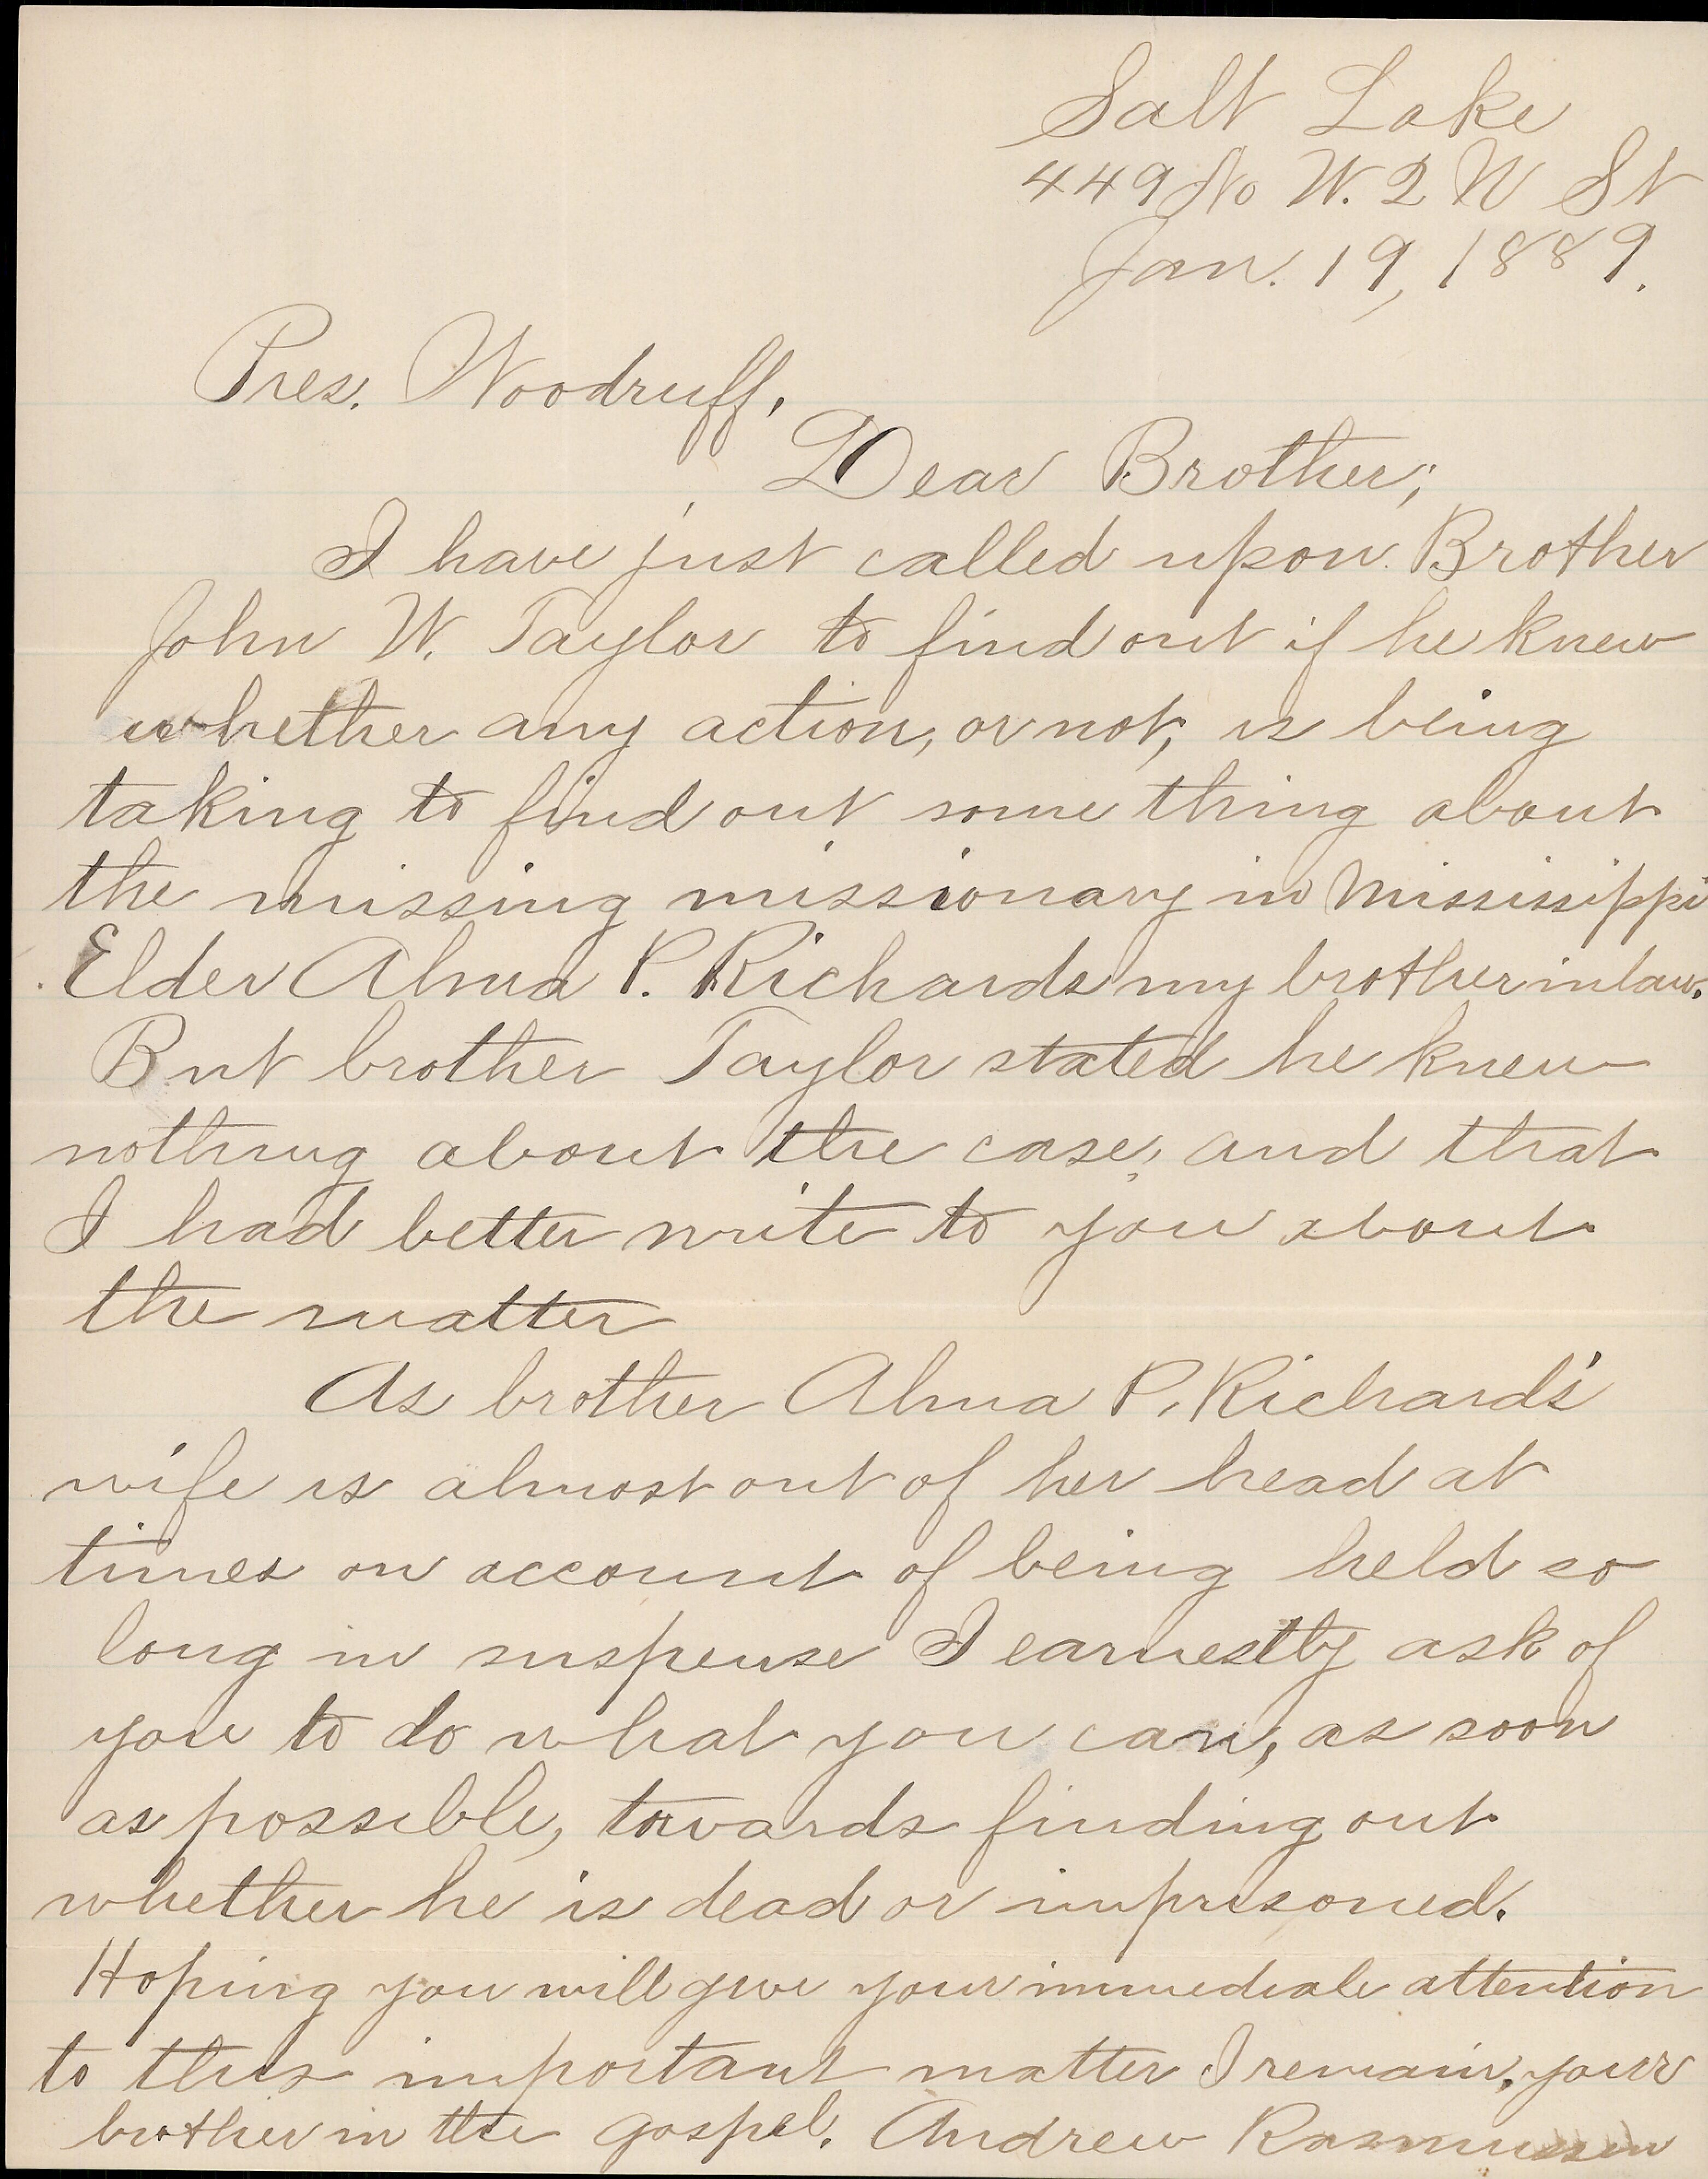 Salt Lake
449 No W. 2 W St
Jan. 19, 1889.
Pres. Woodruff,
Dear Brother;
I have just called upon Brother
John W. Taylor to find out if he knew
whether any action, or not, is being
taking to find out some thing about
the missing missionary in Mississippi
Elder Alma P. Richards my brother in law.
But brother Taylor stated he knew
nothing about the case, and that
I had better write to you about
the matter
As brother Alma P. Richards'
wife is almost out of her head at
times on account of being held so
long in suspense I earnestly ask of
you to do what you can, as soon
as possible, towards finding out
whether he is dead or imprisoned.
Hoping you will give your immediate attention
to this important matter I remain, your
brother in the gospel. Andrew Rasmussen